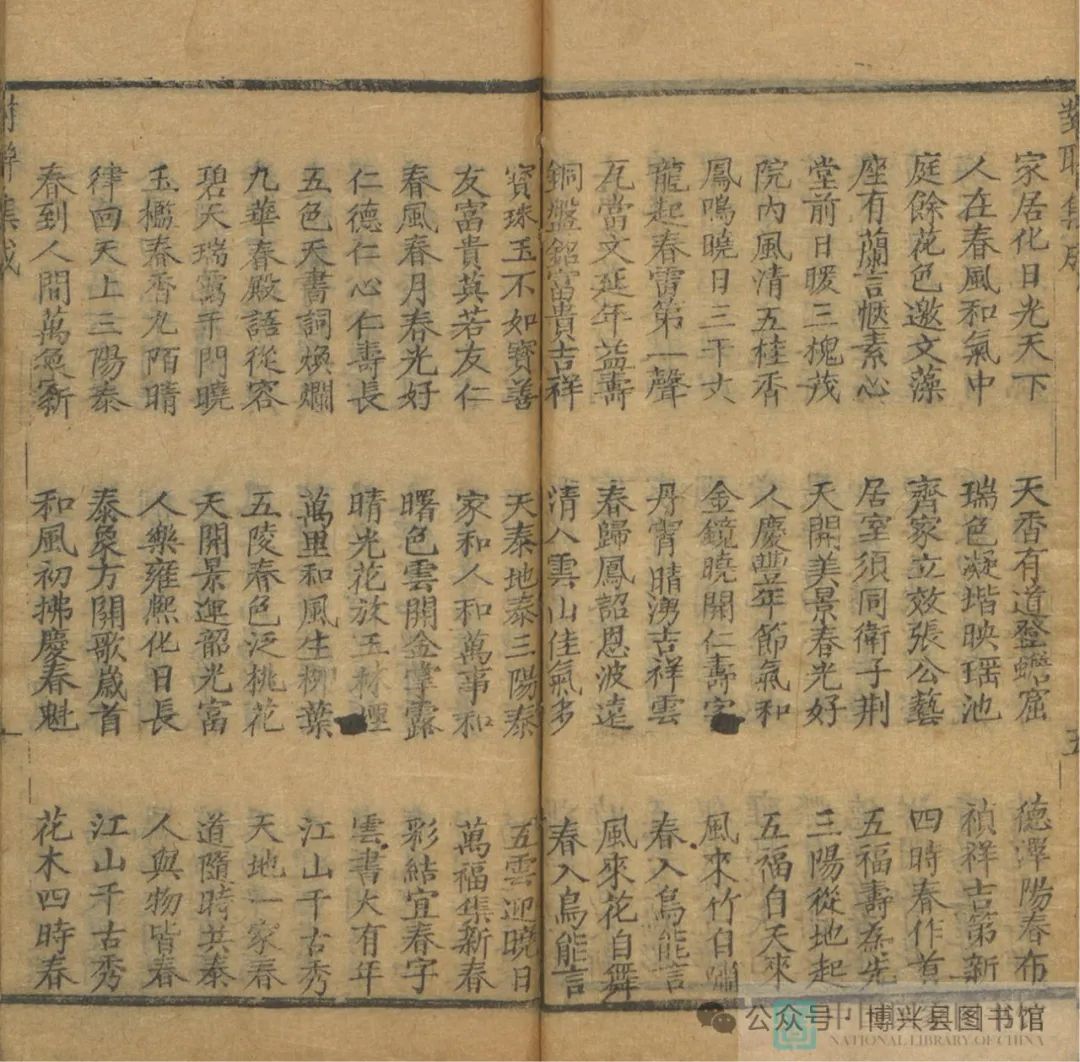 對聯集成
家居化日光天下
人在春風和氣中
庭餘花色邀文藻
座有蘭言愜素心
堂前日暖三槐茂
院內風清五桂香
鳳鳴曉日三千丈
龍起春雷第一聲
瓦當文延年益壽
銅盤銘富貴吉祥
天香有道登蟾窟
瑞色凝堦映瑶池
齊家立效張公藝
居室須同衛子荆
天開美景春光好
人慶豐年節氣和
金鏡曉開仁壽宇
丹霄晴湧吉祥雲
春歸鳳詔恩波遠
清入雲山佳氣多
德澤陽春布
禎祥吉第新
四時春作首
五福壽為先
三陽從地起
五福自天來
風來竹自嘯
春入鳥能言
風來花自舞
春入鳥能言
五
寶珠玉不如寶善
友富貴莫若友仁
春風春月春光好
仁德仁心仁壽長
五色天書詞煥爛
九華春殿語從容
碧天瑞靄千門曉
玉檻春香九陌晴
律回天上三陽泰
春到人間萬象新
天泰地泰三陽泰
家和人和萬事和
曙色雲開金掌露
晴光花放玉林煙
萬里和風生柳葉
五陵春色泛桃花
天開景運韶光富
人樂雍熙化日長
泰象方開歌歲首
和風初拂慶春魁
五雲迎曉日
萬福集新春
彩結宜春字
雲書大有年
江山千古秀
天地一家春
道隨時共泰
人與物皆春
江山千古秀
花木四時春
對聯集成
公众号·博兴县图书馆
NATIONAL LIBRARY OF CHINA